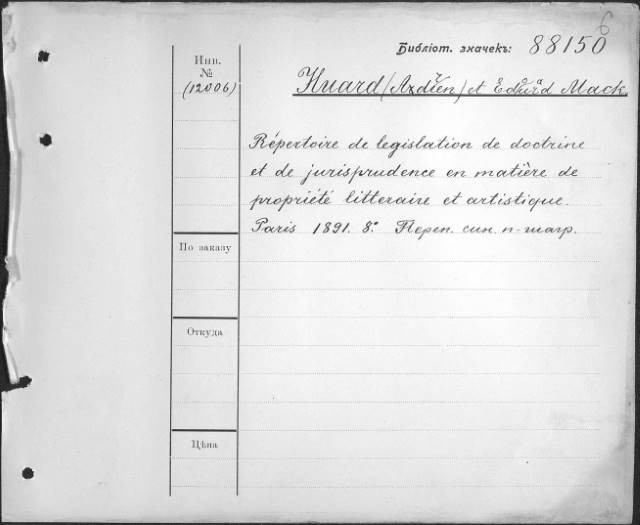 6
Библіот. значекъ: 88150
Инв.
№
(12006)
Huard (Adrien) et Edouard Mack.
Répertoire de legislation de doctrine
et de jurisprudence en matière de
propriété litteraire et artistique.
Paris 1891. 8º Перен. син. п-шагр.
По заказу
Откуда
Цѣна